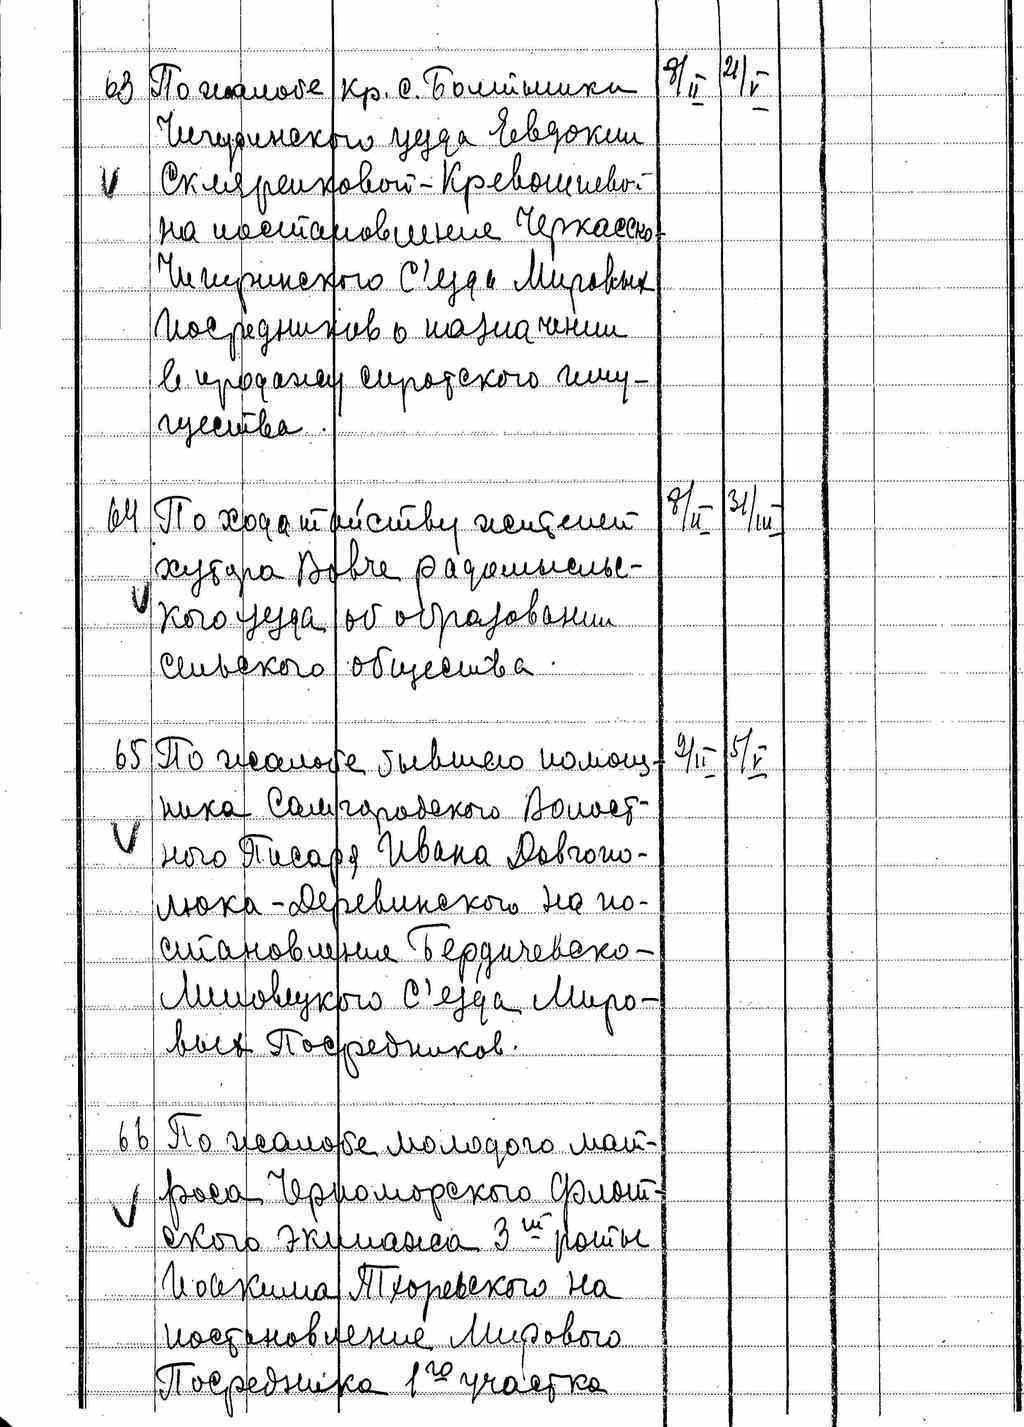 63 По жалобе кр. с. Болтышки 8/II 21/V
Чигиринского уезда Евдокии
V Скляренковой-Кревошиевой
на постановление Черкасско-
Чигиринского С'езда Мировых
Посредников о назначении
в продажу сиротского иму-
щества.
64 По ходатайству жителей 8/II 31/III
хутора Вовче Радомысльс-
V кого уезда об образовании
сельского общества.
65 По жалобе бывшего помощ- 9/II 5/V
ника Самгородского Волост-
V ного Писаря Ивана Довгопо-
люка-Деревинского на по-
становление Бердичевско-
Липовецкого С'езда Миро-
вых Посредников.
66 По жалобе молодого мат-
V роса Черноморского Флот-
ского экипажа 3й роты
Иоакима Тхоревского на
постановление Мирового
Посредника 1го участка